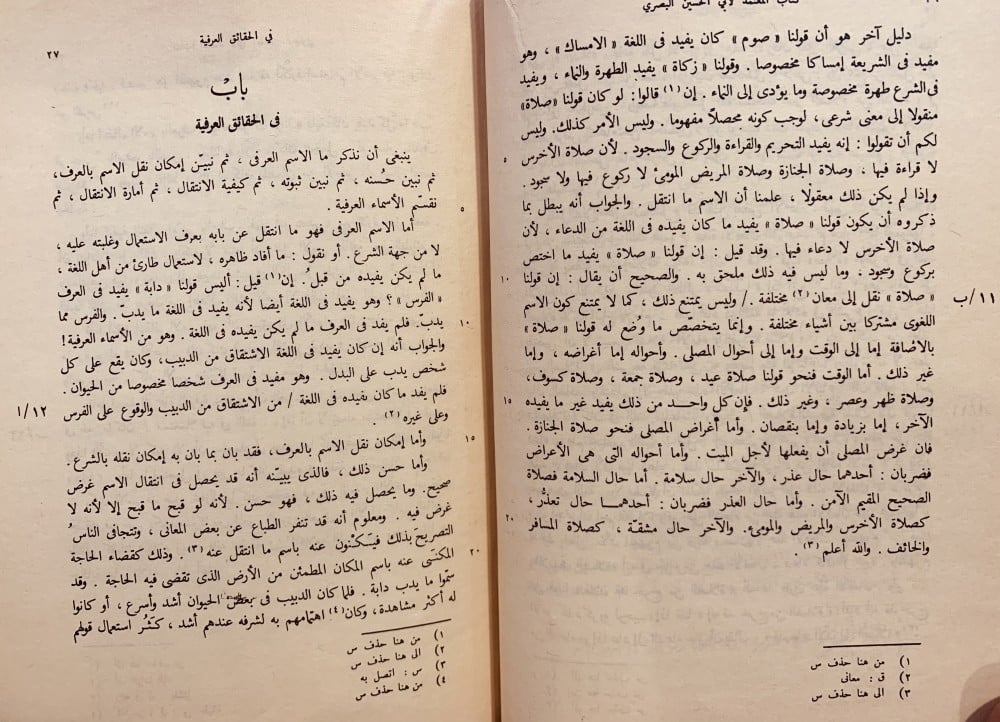 كتاب المعتمد لأبي الحسين البصري
دليل آخر هو أن قولنا « صوم » كان يفيد فى اللغة « الامساك » ، وهو
مفيد فى الشريعة إمساكا مخصوصا . وقولنا « زكاة » يفيد الطهرة والنماء ، ويفيد
فى الشرع طهرة مخصوصة وما يؤدى إلى النماء . إن (١) قالوا : لو كان قولنا « صلاة »
منقولا إلى معنى شرعى ، لوجب كونه محصلاً مفهوما . وليس الأمر كذلك . وليس
لكم أن تقولوا : إنه يفيد التحريم والقراءة والركوع والسجود . لأن صلاة الأخرس ٥
لا قراءة فيها ، وصلاة الجنازة وصلاة المريض المومئ لا ركوع فيها ولا سجود .
وإذا لم يكن ذلك معقولًا ، علمنا أن الاسم ما انتقل . والجواب أنه يبطل بما
ذكروه أن يكون قولنا « صلاة » يفيد ما كان يفيده فى اللغة من الدعاء ، لأن
صلاة الأخرس لا دعاء فيها . وقد قيل : إن قولنا « صلاة » يفيد ما اختص
بركوع وسجود ، وما ليس فيه ذلك ملحق به . والصحيح أن يقال : إن قولنا ١٠
١١/ب « صلاة » نقل إلى معان (٢) مختلفة . / وليس يمتنع ذلك ، كما لا يمتنع كون الاسم
اللغوى مشتركا بين أشياء مختلفة . وإنما يتخصّص ما وُضع له قولنا « صلاة »
بالاضافة إما إلى الوقت وإما إلى أحوال المصلى . وأحواله إما أغراضه ، وإما
غير ذلك . أما الوقت فنحو قولنا صلاة عيد ، وصلاة جمعة ، وصلاة كسوف،
وصلاة ظهر وعصر ، وغير ذلك . فإن كل واحد من ذلك يفيد غير ما يفيده ١٥
الآخر ، إما بزيادة وإما بنقصان . وأما أغراض المصلى فنحو صلاة الجنازة .
فان غرض المصلى أن يفعلها لأجل الميت . وأما أحواله التى هى الأعراض
فضربان : أحدهما حال عذر، والآخر حال سلامة . أما حال السلامة فصلاة
الصحيح المقيم الآمن . وأما حال العذر فضربان : أحدهما حال تعذُّر ،
كصلاة الأخرس والمريض والمومئ. والآخر حال مشقة ، كصلاة المسافر ٢٠
والخائف . والله أعلم (٣) .
١) من هنا حذف س
٢) ق : معانى
٣) الى هنا حذف س
فى الحقائق العرفية
٢٧
بابٌ
فى الحقائق العرفية
ينبغى أن نذكر ما الاسم العرفى ، ثم نبيّن إمكان نقل الاسم بالعرف،
ثم نبين حُسنه ، ثم نبين ثبوته ، ثم كيفية الانتقال ، ثم أمارة الانتقال ، ثم
نقسّم الأسماء العرفية . ٥
أما الاسم العرفى فهو ما انتقل عن بابه بعرف الاستعمال وغلبته عليه ،
لا من جهة الشرع . أو نقول : ما أفاد ظاهره ، لاستعمال طارئ من أهل اللغة ،
ما لم يكن يفيده من قبلُ . إن (١) قيل : أليس قولنا « دابة » يفيد فى العرف
« الفرس » ؟ وهو يفيد فى اللغة أيضا لأنه يفيد فى اللغة ما يدبّ . والفرس مما
يدبّ . فلم يفد فى العرف ما لم يكن يفيده فى اللغة . وهو من الأسماء العرفية! ١٠
والجواب أنه إن كان يفيد فى اللغة الاشتقاق من الدبيب، وكان يقع على كل
شخص يدب على البدل . وهو مفيد فى العرف شخصا مخصوصا من الحيوان .
١٢/ا فلم يفد ما كان يفيده فى اللغة / من الاشتقاق من الدبيب والوقوع على الفرس
وعلى غيره (٢) .
وأما إمكان نقل الاسم بالعرف، فقد بان بما بان به إمكان نقله بالشرع. ١٥
وأما حسن ذلك ، فالذى يبيّنه أنه قد يحصل فى انتقال الاسم غرض
صحيح. وما يحصل فيه ذلك ، فهو حسن . لأنه لو قبح ما قبح إلا لأنه لا
غرض فيه . ومعلوم أنه قد تنفر الطباع عن بعض المعانى ، وتتجافى الناسُ
التصريح بذلك فيكنّون عنه باسم ما انتقل عنه (٣) . وذلك كقضاء الحاجة
المكنّى عنه باسم المكان المطمئن من الأرض الذى تقضى فيه الحاجة . وقد ٢٠
سمّوا ما يدب دابة . فلما كان الدبيب فى بعض الحيوان أشد وأسرع ، أو كانوا
له أكثر مشاهدة، وكان (٤) اهتمامهم به لشرفه عندهم أشد ، كثُر استعمال قولهم
١) من هنا حذف س
٢) الى هنا حذف س
٣) س : اتصل به
٤) من هنا حذف س